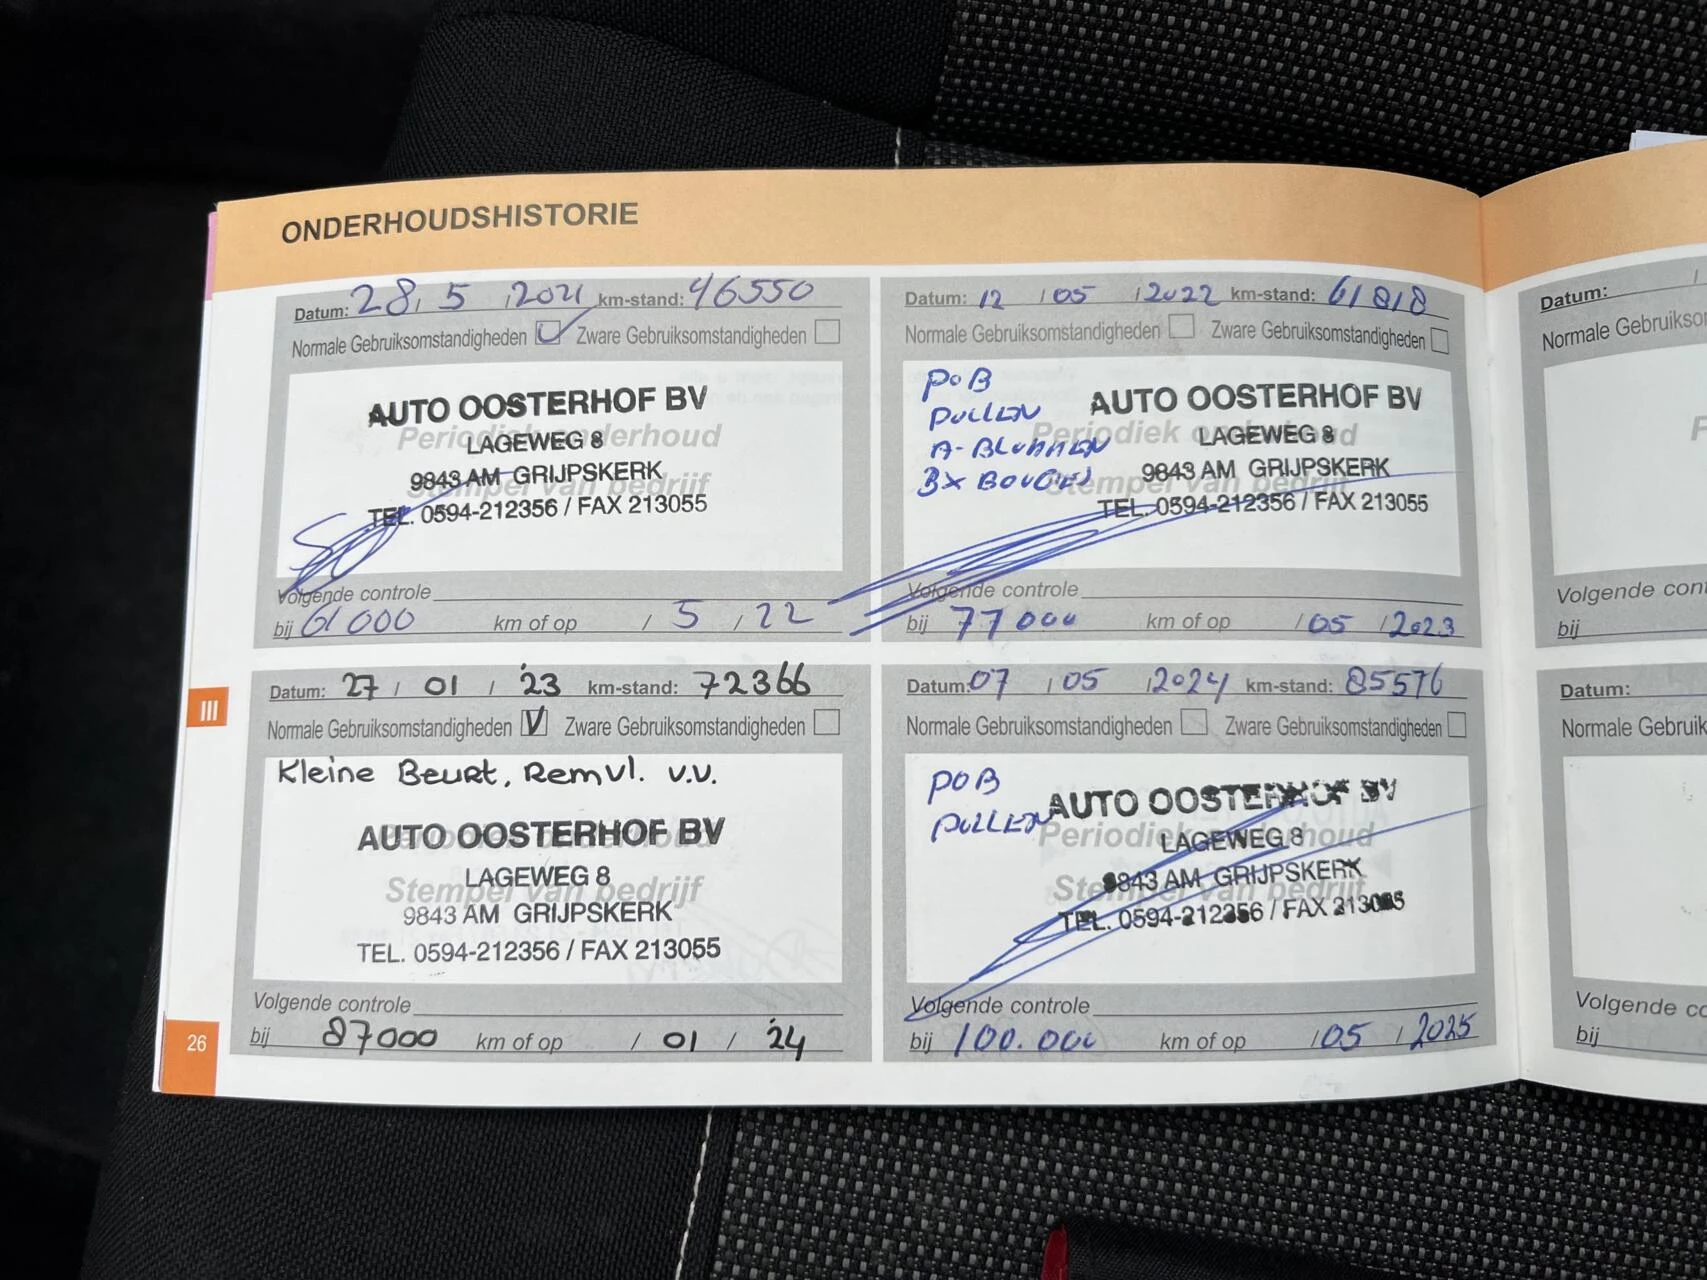 ONDERHOUDSHISTORIE
Datum: 28 / 5 / 2021 km-stand: 46550
Normale Gebruiksomstandigheden Zware Gebruiksomstandigheden
AUTO OOSTERHOF BV
Periodiek onderhoud
LAGEWEG 8
9843 AM GRIJPSKERK
Stempel van bedrijf
TEL. 0594-212356 / FAX 213055
Volgende controle
bij 61000 km of op / 5 / 22
Datum: 12 / 05 / 2022 km-stand: 61818
Normale Gebruiksomstandigheden Zware Gebruiksomstandigheden
POB
PULLEN
3x BOUGIES
AUTO OOSTERHOF BV
Periodiek onderhoud
LAGEWEG 8
9843 AM GRIJPSKERK
Stempel van bedrijf
TEL. 0594-212356 / FAX 213055
Volgende controle
bij 77000 km of op / 05 / 2023
III
Datum: 27 / 01 / '23 km-stand: 72366
Normale Gebruiksomstandigheden V Zware Gebruiksomstandigheden
Kleine Beurt, Remvl. v.v.
AUTO OOSTERHOF BV
Periodiek onderhoud
LAGEWEG 8
Stempel van bedrijf
9843 AM GRIJPSKERK
TEL. 0594-212356 / FAX 213055
Volgende controle
bij 87000 km of op / 01 / '24
Datum: 07 / 05 / 2024 km-stand: 85576
Normale Gebruiksomstandigheden Zware Gebruiksomstandigheden
POB
PULLEN
AUTO OOSTERHOF BV
Periodiek onderhoud
LAGEWEG 8
9843 AM GRIJPSKERK
Stempel van bedrijf
TEL. 0594-212356 / FAX 213055
Volgende controle
bij 100.000 km of op / 05 / 2025
26
Datum: /
Normale
Volgende
bij
Datum:
Normale
Volgende
bij